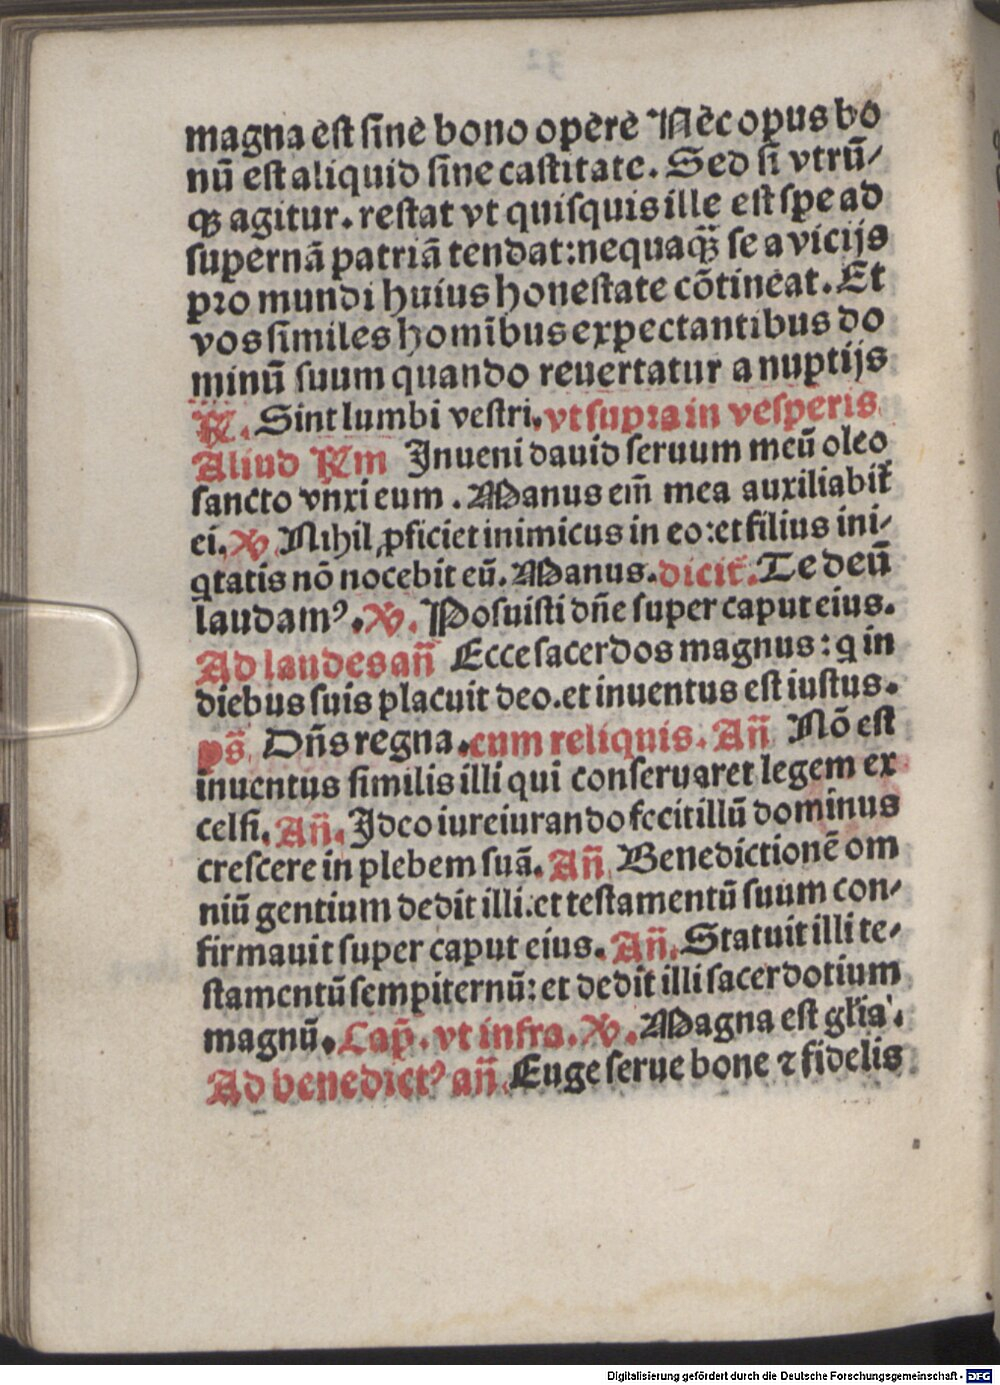 magna est sine bono opere Nec opus bo
nū est aliquid sine castitate. Sed si vtrū/
qꝫ agitur. restat vt quisquis ille est spe ad
supernā patriā tendat: nequaq̄ꝫ se a vicijs
pro mundi huius honestate cōtineat. Et
vos similes homībus expectantibus do
minū suum quando reuertatur a nuptijs
℟. Sint lumbi vestri. vt supra in vesperis
Aliud ℟m Inueni dauid seruum meū oleo
sancto vnxi eum. Manus em̄ mea auxiliabit᷑
ei. ℣. Nihil ꝓficiet inimicus in eo: et filius ini/
qtatis nō nocebit eū. Manus. dicit᷑. Te deū
laudamꝰ. ℣. Posuisti dn̄e super caput eius.
Ad laudes an̄ Ecce sacerdos magnus: q in
diebus suis placuit deo. et inuentus est iustus.
ps̄ Dn̄s regna. cum reliquis. An̄ Nō est
inuentus similis illi qui conseruaret legem ex
celsi. An̄. Ideo iureiurando fecit illū dominus
crescere in plebem suā. An̄ Benedictionē om
niū gentium dedit illi. et testamentū suum con/
firmauit super caput eius. An̄. Statuit illi te/
stamentū sempiternū: et dedit illi sacerdotium
magnū. Cap̄. vt infra. ℣. Magna est gl̄ia.
Ad benedictꝰ an̄. Euge serue bone ⁊ fidelis
Digitalisierung gefördert durch die Deutsche Forschungsgemeinschaft - DFG